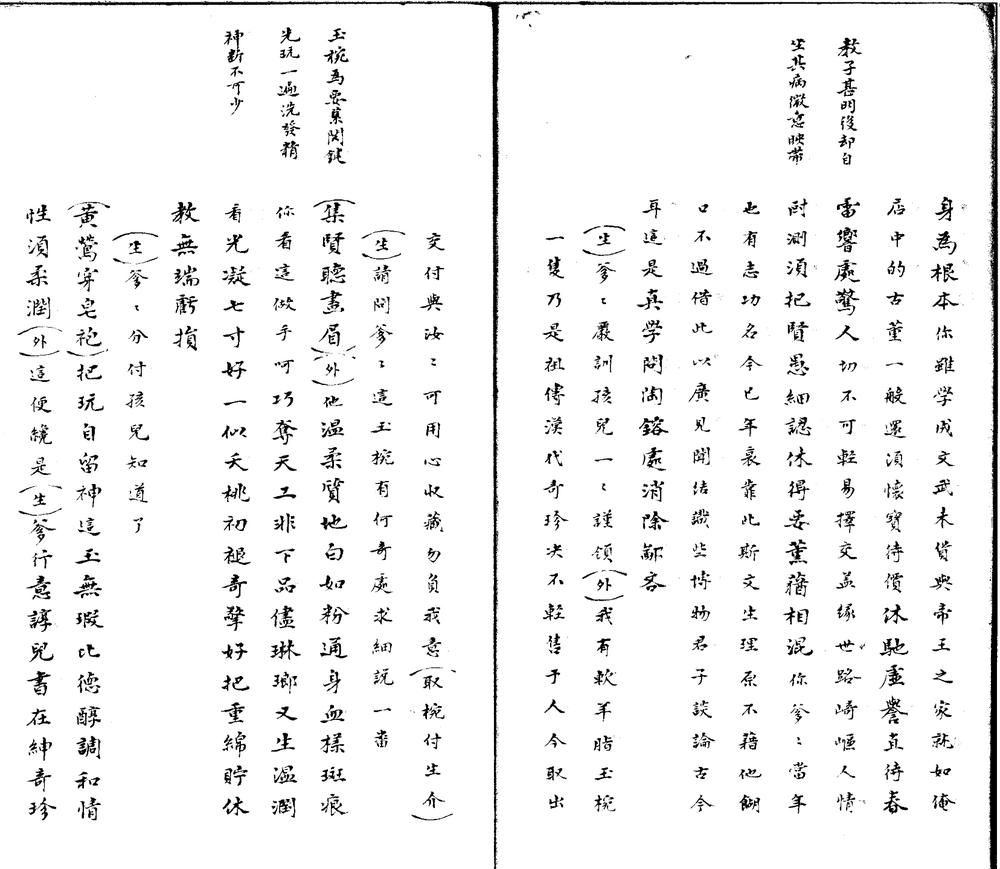 教子甚明後却自
坐其病微意映帶
身為根本你雖學成文武未貨與帝王之家就如俺
店中的古董一般還須懷寶待價休馳虛譽直待春
雷響處驚人切不可輕易擇交盖緣世路崎嶇人情
測須把賢愚細認休得要薰蕕相混你爹〻當年
也有志功名今已年衰靠此斯文生理原不藉他餬
口不過借此以廣見聞結識些博物君子談論古今
耳這是真學問陶鎔處消除鄙吝
(生)爹〻嚴訓孩兒一〻謹領(外)我有軟羊脂玉椀
一隻乃是祖傳漢代奇珍决不輕售于人今取出
玉椀為要菓関鍵
先玩一遍洗發精
神斷不可少
交付與汝〻可用心收藏勿負我意(取椀付生介)
(生)請問爹〻這玉椀有何奇處求細説一畨
(集賢聽畫眉)(外)他温柔質地白如粉通身血搽斑痕
你看這做手呵巧奪天工非下品儘琳瑯又生温潤
看光凝七寸好一似夭桃初褪奇擎好把重綿貯休
教無瑞虧損
(生)爹〻分付孩兒知道了
(黃鶯穿皂袍)把玩自留神這玉無瑕比德醇調和情
性須柔潤(外)這便纔是(生)爹行意諄兒書在紳奇珍